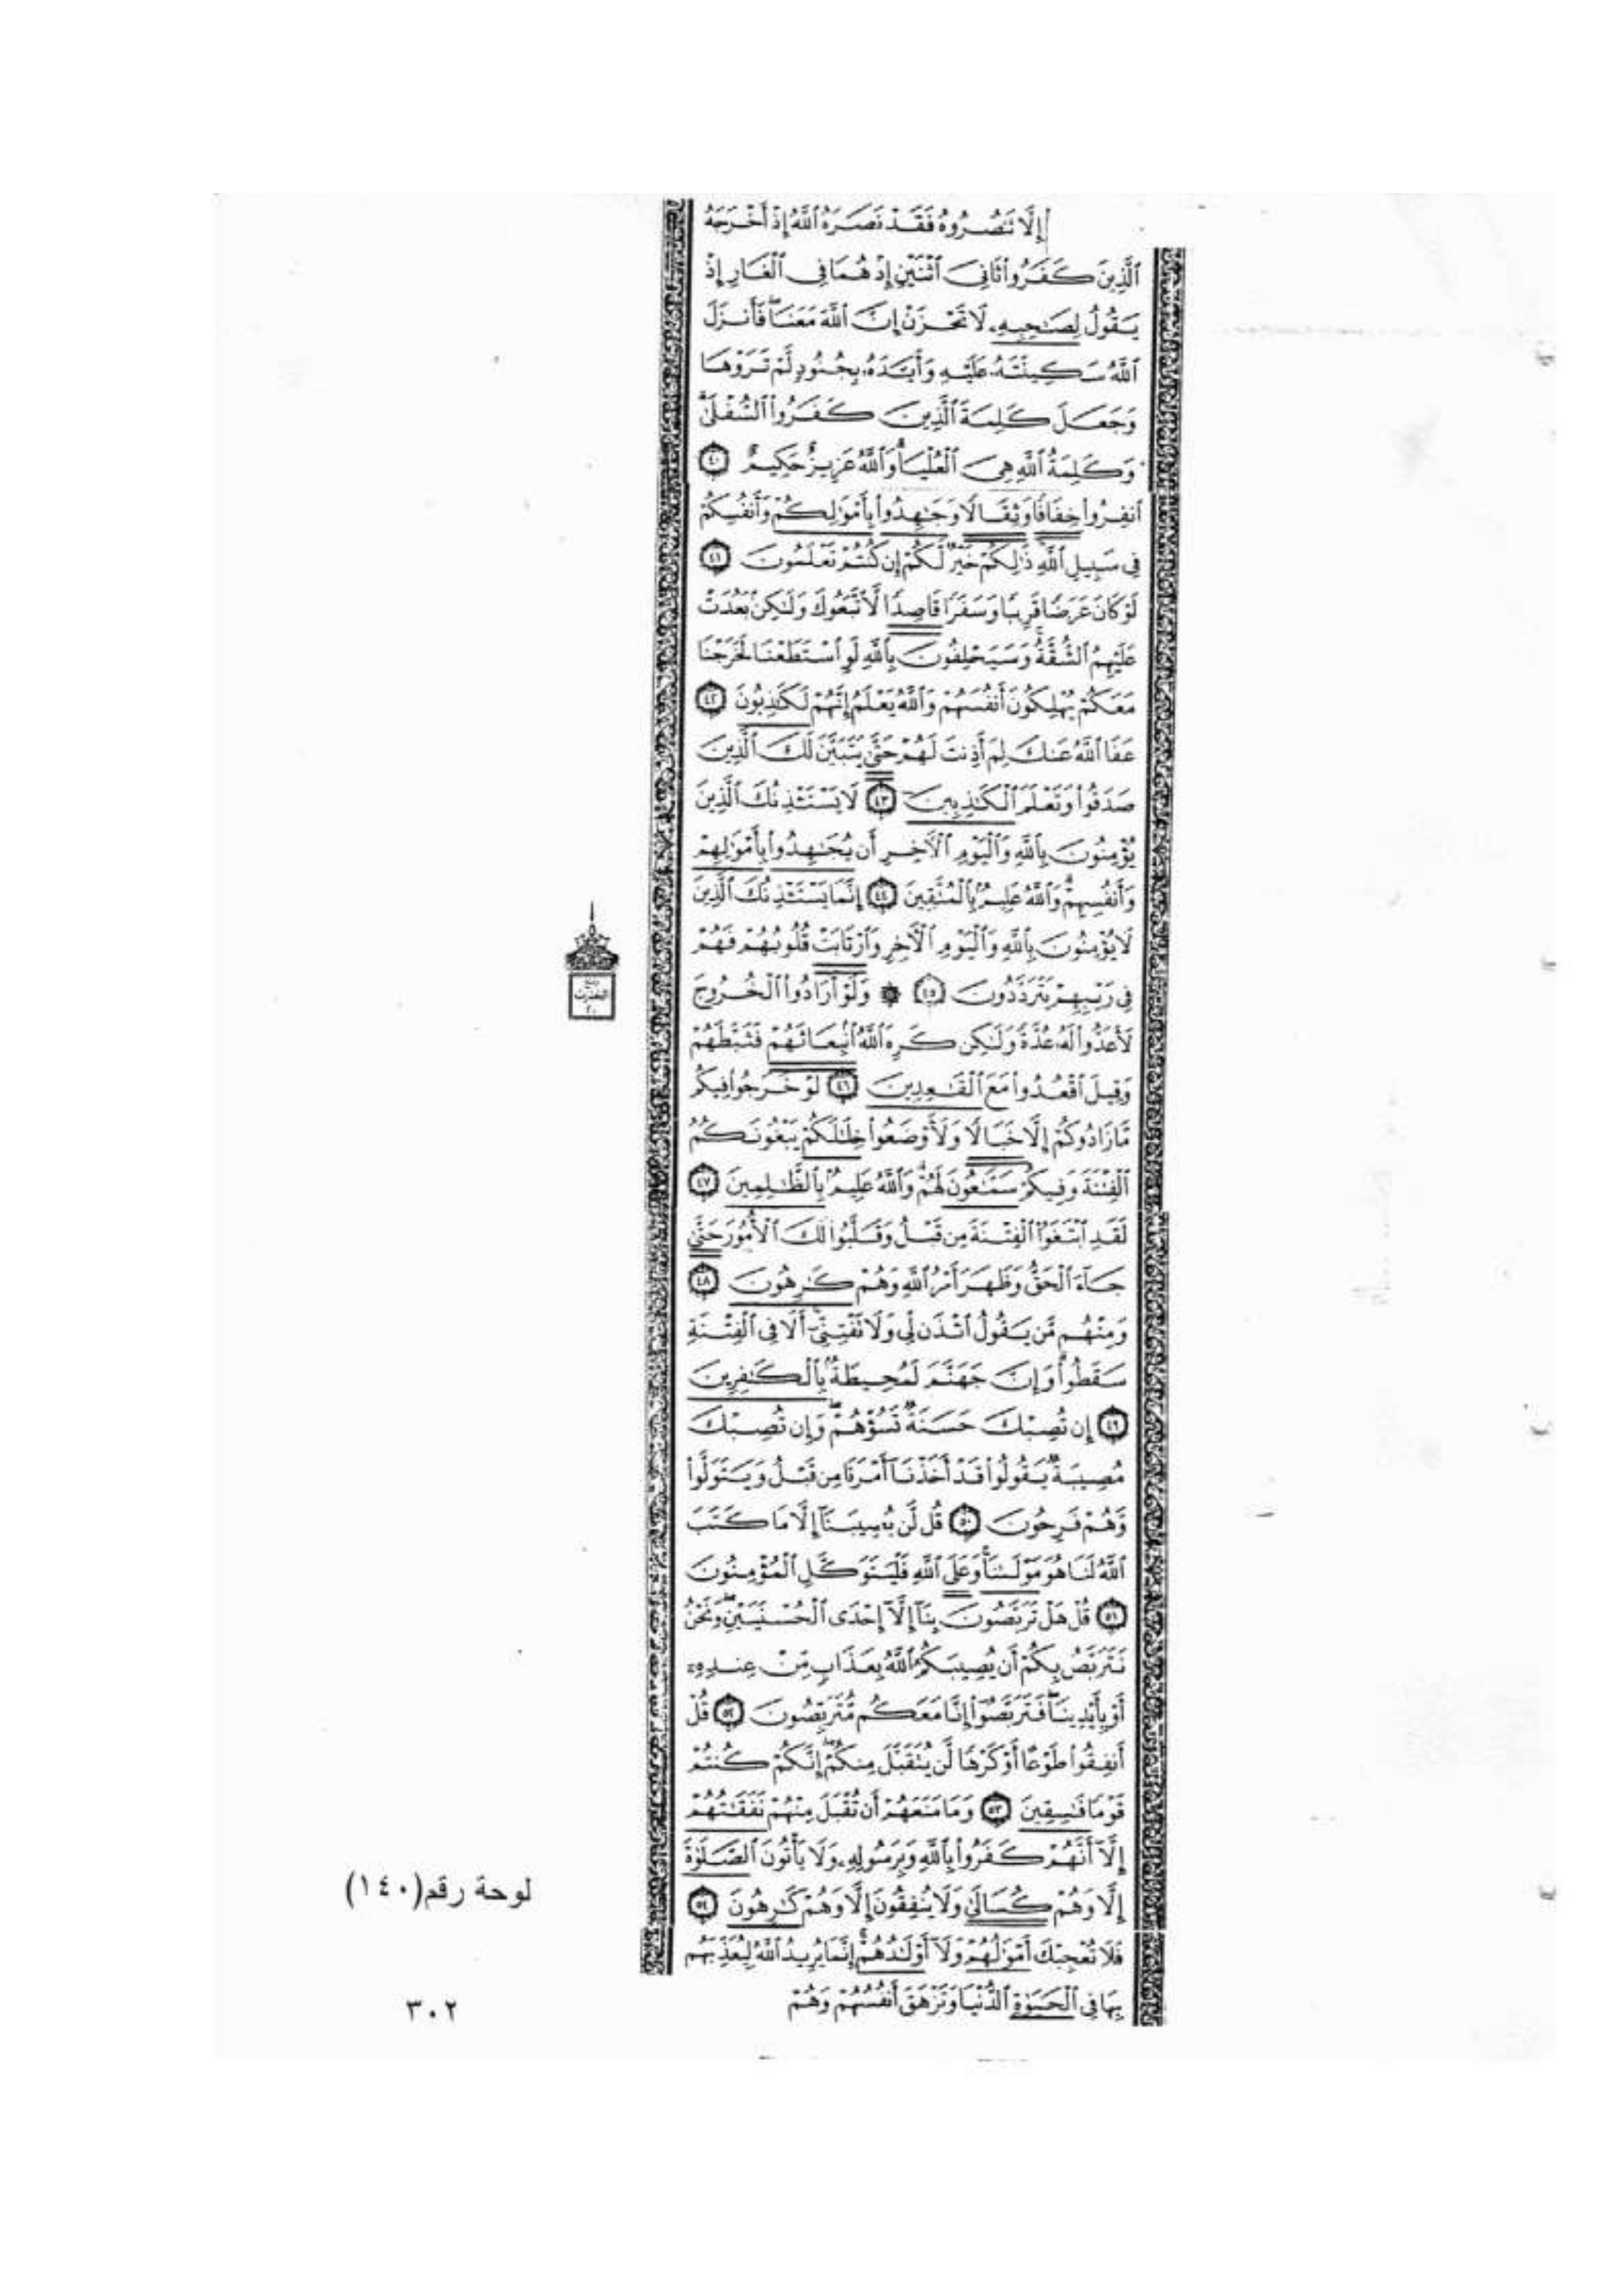 إِلَّا تَنصُرُوهُ فَقَدْ نَصَرَهُ ٱللَّهُ إِذْ أَخْرَجَهُ
ٱلَّذِينَ كَفَرُوا۟ ثَانِىَ ٱثْنَيْنِ إِذْ هُمَا فِى ٱلْغَارِ إِذْ
يَقُولُ لِصَٰحِبِهِۦ لَا تَحْزَنْ إِنَّ ٱللَّهَ مَعَنَا ۖ فَأَنزَلَ
ٱللَّهُ سَكِينَتَهُۥ عَلَيْهِ وَأَيَّدَهُۥ بِجُنُودٍ لَّمْ تَرَوْهَا
وَجَعَلَ كَلِمَةَ ٱلَّذِينَ كَفَرُوا۟ ٱلسُّفْلَىٰ ۗ
وَكَلِمَةُ ٱللَّهِ هِىَ ٱلْعُلْيَا ۗ وَٱللَّهُ عَزِيزٌ حَكِيمٌ ٤٠
ٱنفِرُوا۟ خِفَافًا وَثِقَالًا وَجَٰهِدُوا۟ بِأَمْوَٰلِكُمْ وَأَنفُسِكُمْ
فِى سَبِيلِ ٱللَّهِ ۚ ذَٰلِكُمْ خَيْرٌ لَّكُمْ إِن كُنتُمْ تَعْلَمُونَ ٤١
لَوْ كَانَ عَرَضًا قَرِيبًا وَسَفَرًا قَاصِدًا لَّٱتَّبَعُوكَ وَلَٰكِنۢ بَعُدَتْ
عَلَيْهِمُ ٱلشُّقَّةُ ۚ وَسَيَحْلِفُونَ بِٱللَّهِ لَوِ ٱسْتَطَعْنَا لَخَرَجْنَا
مَعَكُمْ يُهْلِكُونَ أَنفُسَهُمْ وَٱللَّهُ يَعْلَمُ إِنَّهُمْ لَكَٰذِبُونَ ٤٢
عَفَا ٱللَّهُ عَنكَ لِمَ أَذِنتَ لَهُمْ حَتَّىٰ يَتَبَيَّنَ لَكَ ٱلَّذِينَ
صَدَقُوا۟ وَتَعْلَمَ ٱلْكَٰذِبِينَ ٤٣ لَا يَسْتَـْٔذِنُكَ ٱلَّذِينَ
يُؤْمِنُونَ بِٱللَّهِ وَٱلْيَوْمِ ٱلْـَٔاخِرِ أَن يُجَٰهِدُوا۟ بِأَمْوَٰلِهِمْ
وَأَنفُسِهِمْ ۗ وَٱللَّهُ عَلِيمٌۢ بِٱلْمُتَّقِينَ ٤٤ إِنَّمَا يَسْتَـْٔذِنُكَ ٱلَّذِينَ
لَا يُؤْمِنُونَ بِٱللَّهِ وَٱلْيَوْمِ ٱلْـَٔاخِرِ وَٱرْتَابَتْ قُلُوبُهُمْ فَهُمْ
فِى رَيْبِهِمْ يَتَرَدَّدُونَ ٤٥ ۞ وَلَوْ أَرَادُوا۟ ٱلْخُرُوجَ
لَأَعَدُّوا۟ لَهُۥ عُدَّةً وَلَٰكِن كَرِهَ ٱللَّهُ ٱنۢبِعَاثَهُمْ فَثَبَّطَهُمْ
وَقِيلَ ٱقْعُدُوا۟ مَعَ ٱلْقَٰعِدِينَ ٤٦ لَوْ خَرَجُوا۟ فِيكُم
مَّا زَادُوكُمْ إِلَّا خَبَالًا وَلَأَوْضَعُوا۟ خِلَٰلَكُمْ يَبْغُونَكُمُ
ٱلْفِتْنَةَ وَفِيكُمْ سَمَّٰعُونَ لَهُمْ ۗ وَٱللَّهُ عَلِيمٌۢ بِٱلظَّٰلِمِينَ ٤٧
لَقَدِ ٱبْتَغَوُا۟ ٱلْفِتْنَةَ مِن قَبْلُ وَقَلَّبُوا۟ لَكَ ٱلْأُمُورَ حَتَّىٰ
جَآءَ ٱلْحَقُّ وَظَهَرَ أَمْرُ ٱللَّهِ وَهُمْ كَٰرِهُونَ ٤٨
وَمِنْهُم مَّن يَقُولُ ٱئْذَن لِّى وَلَا تَفْتِنِّىٓ ۚ أَلَا فِى ٱلْفِتْنَةِ
سَقَطُوا۟ ۗ وَإِنَّ جَهَنَّمَ لَمُحِيطَةٌۢ بِٱلْكَٰفِرِينَ
٤٩ إِن تُصِبْكَ حَسَنَةٌ تَسُؤْهُمْ ۖ وَإِن تُصِبْكَ
مُصِيبَةٌ يَقُولُوا۟ قَدْ أَخَذْنَآ أَمْرَنَا مِن قَبْلُ وَيَتَوَلَّوا۟
وَّهُمْ فَرِحُونَ ٥٠ قُل لَّن يُصِيبَنَآ إِلَّا مَا كَتَبَ
ٱللَّهُ لَنَا هُوَ مَوْلَىٰنَا ۚ وَعَلَى ٱللَّهِ فَلْيَتَوَكَّلِ ٱلْمُؤْمِنُونَ
٥١ قُلْ هَلْ تَرَبَّصُونَ بِنَآ إِلَّآ إِحْدَى ٱلْحُسْنَيَيْنِ ۖ وَنَحْنُ
نَتَرَبَّصُ بِكُمْ أَن يُصِيبَكُمُ ٱللَّهُ بِعَذَابٍ مِّنْ عِندِهِۦٓ
أَوْ بِأَيْدِينَا ۖ فَتَرَبَّصُوٓا۟ إِنَّا مَعَكُم مُّتَرَبِّصُونَ ٥٢ قُلْ
أَنفِقُوا۟ طَوْعًا أَوْ كَرْهًا لَّن يُتَقَبَّلَ مِنكُمْ ۖ إِنَّكُمْ كُنتُمْ
قَوْمًا فَٰسِقِينَ ٥٣ وَمَا مَنَعَهُمْ أَن تُقْبَلَ مِنْهُمْ نَفَقَٰتُهُمْ
إِلَّآ أَنَّهُمْ كَفَرُوا۟ بِٱللَّهِ وَبِرَسُولِهِۦ وَلَا يَأْتُونَ ٱلصَّلَوٰةَ
إِلَّا وَهُمْ كُسَالَىٰ وَلَا يُنفِقُونَ إِلَّا وَهُمْ كَٰرِهُونَ ٥٤
فَلَا تُعْجِبْكَ أَمْوَٰلُهُمْ وَلَآ أَوْلَٰدُهُمْ ۚ إِنَّمَا يُرِيدُ ٱللَّهُ لِيُعَذِّبَهُم
بِهَا فِى ٱلْحَيَوٰةِ ٱلدُّنْيَا وَتَزْهَقَ أَنفُسُهُمْ وَهُمْ
لوحة رقم(١٤٠)
٣٠٢